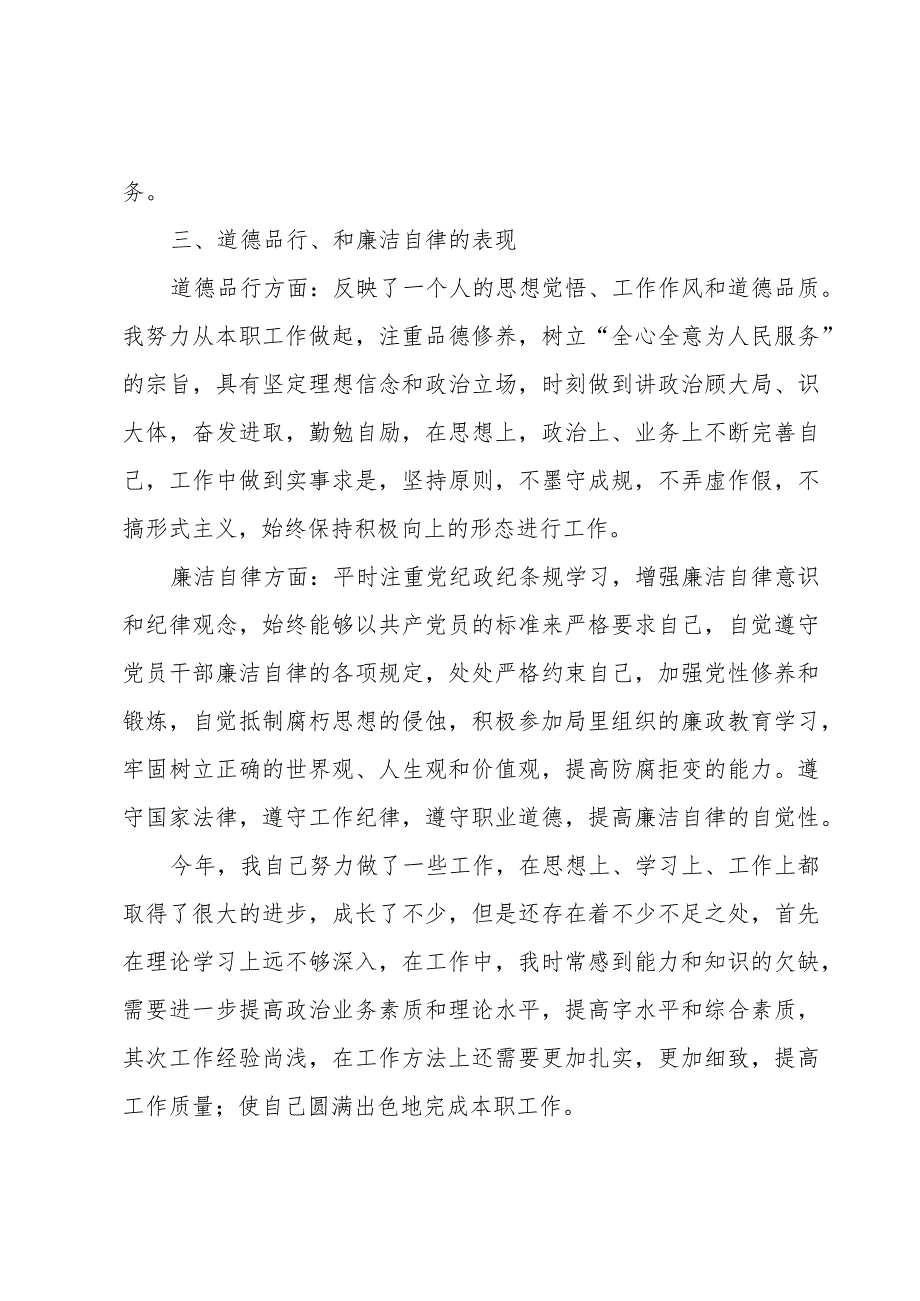 务。
三、道德品行、和廉洁自律的表现
道德品行方面：反映了一个人的思想觉悟、工作作风和道德品质。
我努力从本职工作做起，注重品德修养，树立“全心全意为人民服务”
的宗旨，具有坚定理想信念和政治立场，时刻做到讲政治顾大局、识
大体，奋发进取，勤勉自励，在思想上，政治上、业务上不断完善自
己，工作中做到实事求是，坚持原则，不墨守成规，不弄虚作假，不
搞形式主义，始终保持积极向上的形态进行工作。
廉洁自律方面：平时注重党纪政纪条规学习，增强廉洁自律意识
和纪律观念，始终能够以共产党员的标准来严格要求自己，自觉遵守
党员干部廉洁自律的各项规定，处处严格约束自己，加强党性修养和
锻炼，自觉抵制腐朽思想的侵蚀，积极参加局里组织的廉政教育学习，
牢固树立正确的世界观、人生观和价值观，提高防腐拒变的能力。遵
守国家法律，遵守工作纪律，遵守职业道德，提高廉洁自律的自觉性。
今年，我自己努力做了一些工作，在思想上、学习上、工作上都
取得了很大的进步，成长了不少，但是还存在着不少不足之处，首先
在理论学习上远不够深入，在工作中，我时常感到能力和知识的欠缺，
需要进一步提高政治业务素质和理论水平，提高字水平和综合素质，
其次工作经验尚浅，在工作方法上还需要更加扎实，更加细致，提高
工作质量；使自己圆满出色地完成本职工作。